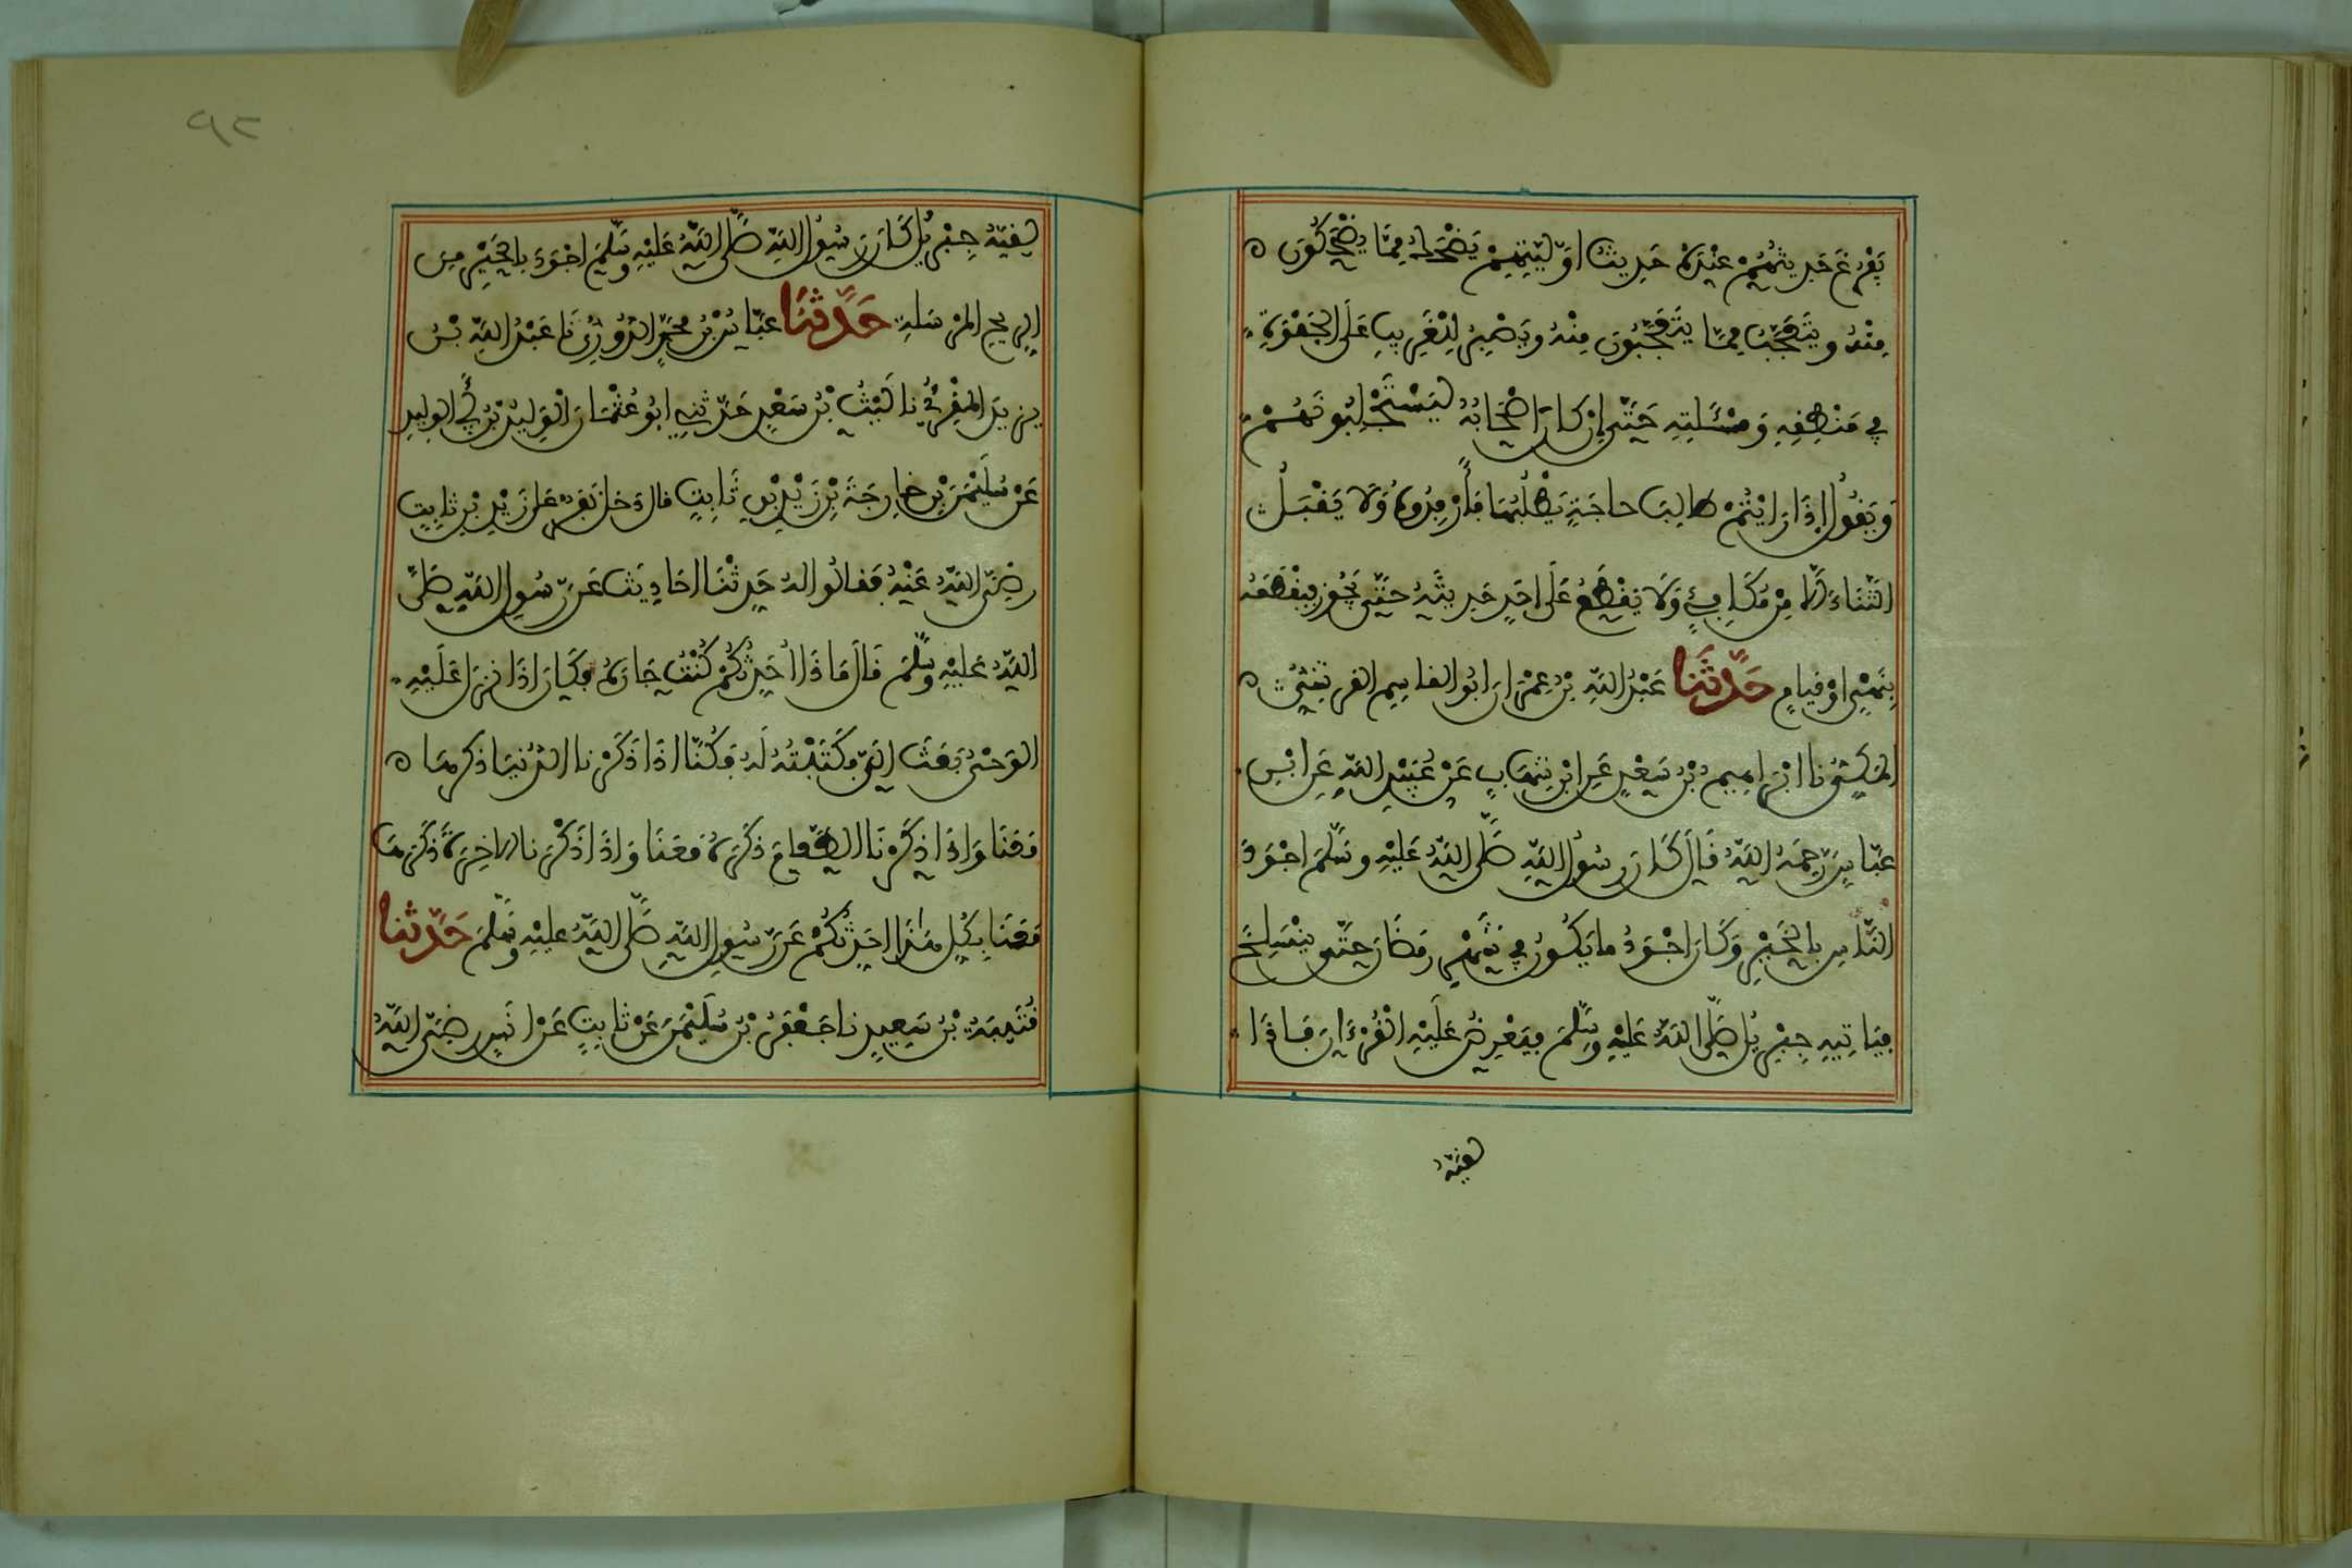 يَفْرُغَ حَدِيثُهُمْ عِنْدَهُ حَدِيثُ أوَّلِيَّتِهِمْ يَضْحَكُ مِمَّا يَضْحَكُونَ ه
مِنْهُ وَيَتَعَجَّبُ مِمَّا يَتَعَجَّبُونَ مِنْهُ وَيَصْبِرُ لِلْغَرِيبِ عَلَى الْجَفْوَةِ
فِي مَنْطِقِهِ وَمَسْئَلَتِهِ حَتَّى إِنْ كَانَ أصْحَابُهُ لَيَسْتَجْلِبُونَهُمْ
وَيَقُولُ إِذَا رَايْتُمْ طَالِبَ حاجَةٍ يَطْلُبُهَا فَأَرْفِدُوهُ وَلَا يَقْبَلُ
الثَّنَاءَ إلَّا مِنْ مُكَافِئٍ وَلَا يَقْطَعُ عَلَى احَدٍ حَدِيثَهُ حَتَّى يَجُوزَ فَيَقْطَعَهُ
بِنَهْيٍ اوْ قِيامٍ حَدَّثَنَا عَبْدُ اللَّهِ بْنُ عِمْرَانَ ابُو القَاسِمِ القرشِيُّ ه
المَكِّيُّ نا ابْرَاهِيمُ بْنُ سَعْدٍ عَنِ ابْنِ شِهَابٍ عَنْ عُبَيْدِ اللَّهِ عَنِ ابْنِ
عَبَّاسٍ رَحِمَهُ اللَّهُ قَالَ كَانَ رَسُولُ اللَّهِ صَلَّى اللَّهُ عَلَيْهِ وَسَلَّمَ اجْوَدَ
النَّاسِ بِالْخَيْرِ وَكَانَ اجْوَدُ ما يَكُونُ فِي شَهْرِ رَمَضَانَ حَتَّى يَنْسَلِخَ
فَيَاتِيهِ جِبْرِيلُ صَلَّى اللَّهُ عَلَيْهِ وَسَلَّمَ فَيَعْرِضُ عَلَيْهِ الْقُرْءَانَ فَاذَا
لقيَهُ
٩٢
لَقِيَهُ جِبْرِيلُ كَانَ رَسُولُ اللَّهِ صَلَّى اللَّهُ عَلَيْهِ وَسَلَّمَ اجْوَدَ بِالْخَيْرِ مِنَ
الرِيحِ المُرْسَلَةِ حَدَّثَنَا عَبَّاسُ بْنُ مُحَمَّدٍ الدُّورِيُّ نَا عَبْدُ اللَّهِ بْنُ
يزِيدَ المُقْرِئُ نا لَيْثُ بْنُ سَعْدٍ حَدَّثَنِي ابُو عُثْمَانَ الْوَلِيدُ بْنُ أَبِي الوليدِ
عَنْ سُلَيْمَنَ بْنِ خَارِجَةَ بْنِ زَيْدِ بْنِ ثَابِتٍ قال دَخل نَفَرٌ على زَيْدِ بْنِ ثابِتٍ
رضِيَ اللَّهُ عَنْهُ فَقالُوا لهُ حَدِّثْنَا احَادِيثَ عَنْ رَسُولِ اللَّهِ صَلَّى
اللَّهُ عَلَيْهِ وَسَلَّمَ قَالَ مَا ذَا احَدِّثُكُمْ كُنْتُ جَارَهُ فَكَانَ اذَا نَزَلَ عَلَيْهِ
الوَحْيُ بَعَثَ الَيَّ فَكَتَبْتُهُ لَهُ فَكُنَّا اذَا ذَكَرْنا الدُّنْيَا ذكرهَا ه
مَعَنَا وَاذَا ذَكَرْنَا الطَّعَامَ ذَكَرَهُ مَعَنَا وَاذَا ذَكَرْنا الاخِرَةَ ذَكَرَهَا
مَعَنَا فَكُلُّ هَذَا احَدِّثُكُمْ عَنْ رَسُولِ اللَّهِ صَلَّى اللَّهُ عَلَيْهِ وَسَلَّمَ حَدَّثَنا
قُتَيْبَةُ بْنُ سَعِيدٍ نا جَعْفَرُ بْنُ سُلَيْمَنَ عَنْ ثابِتٍ عَنْ انَسٍ رَضِيَ اللَّهُ